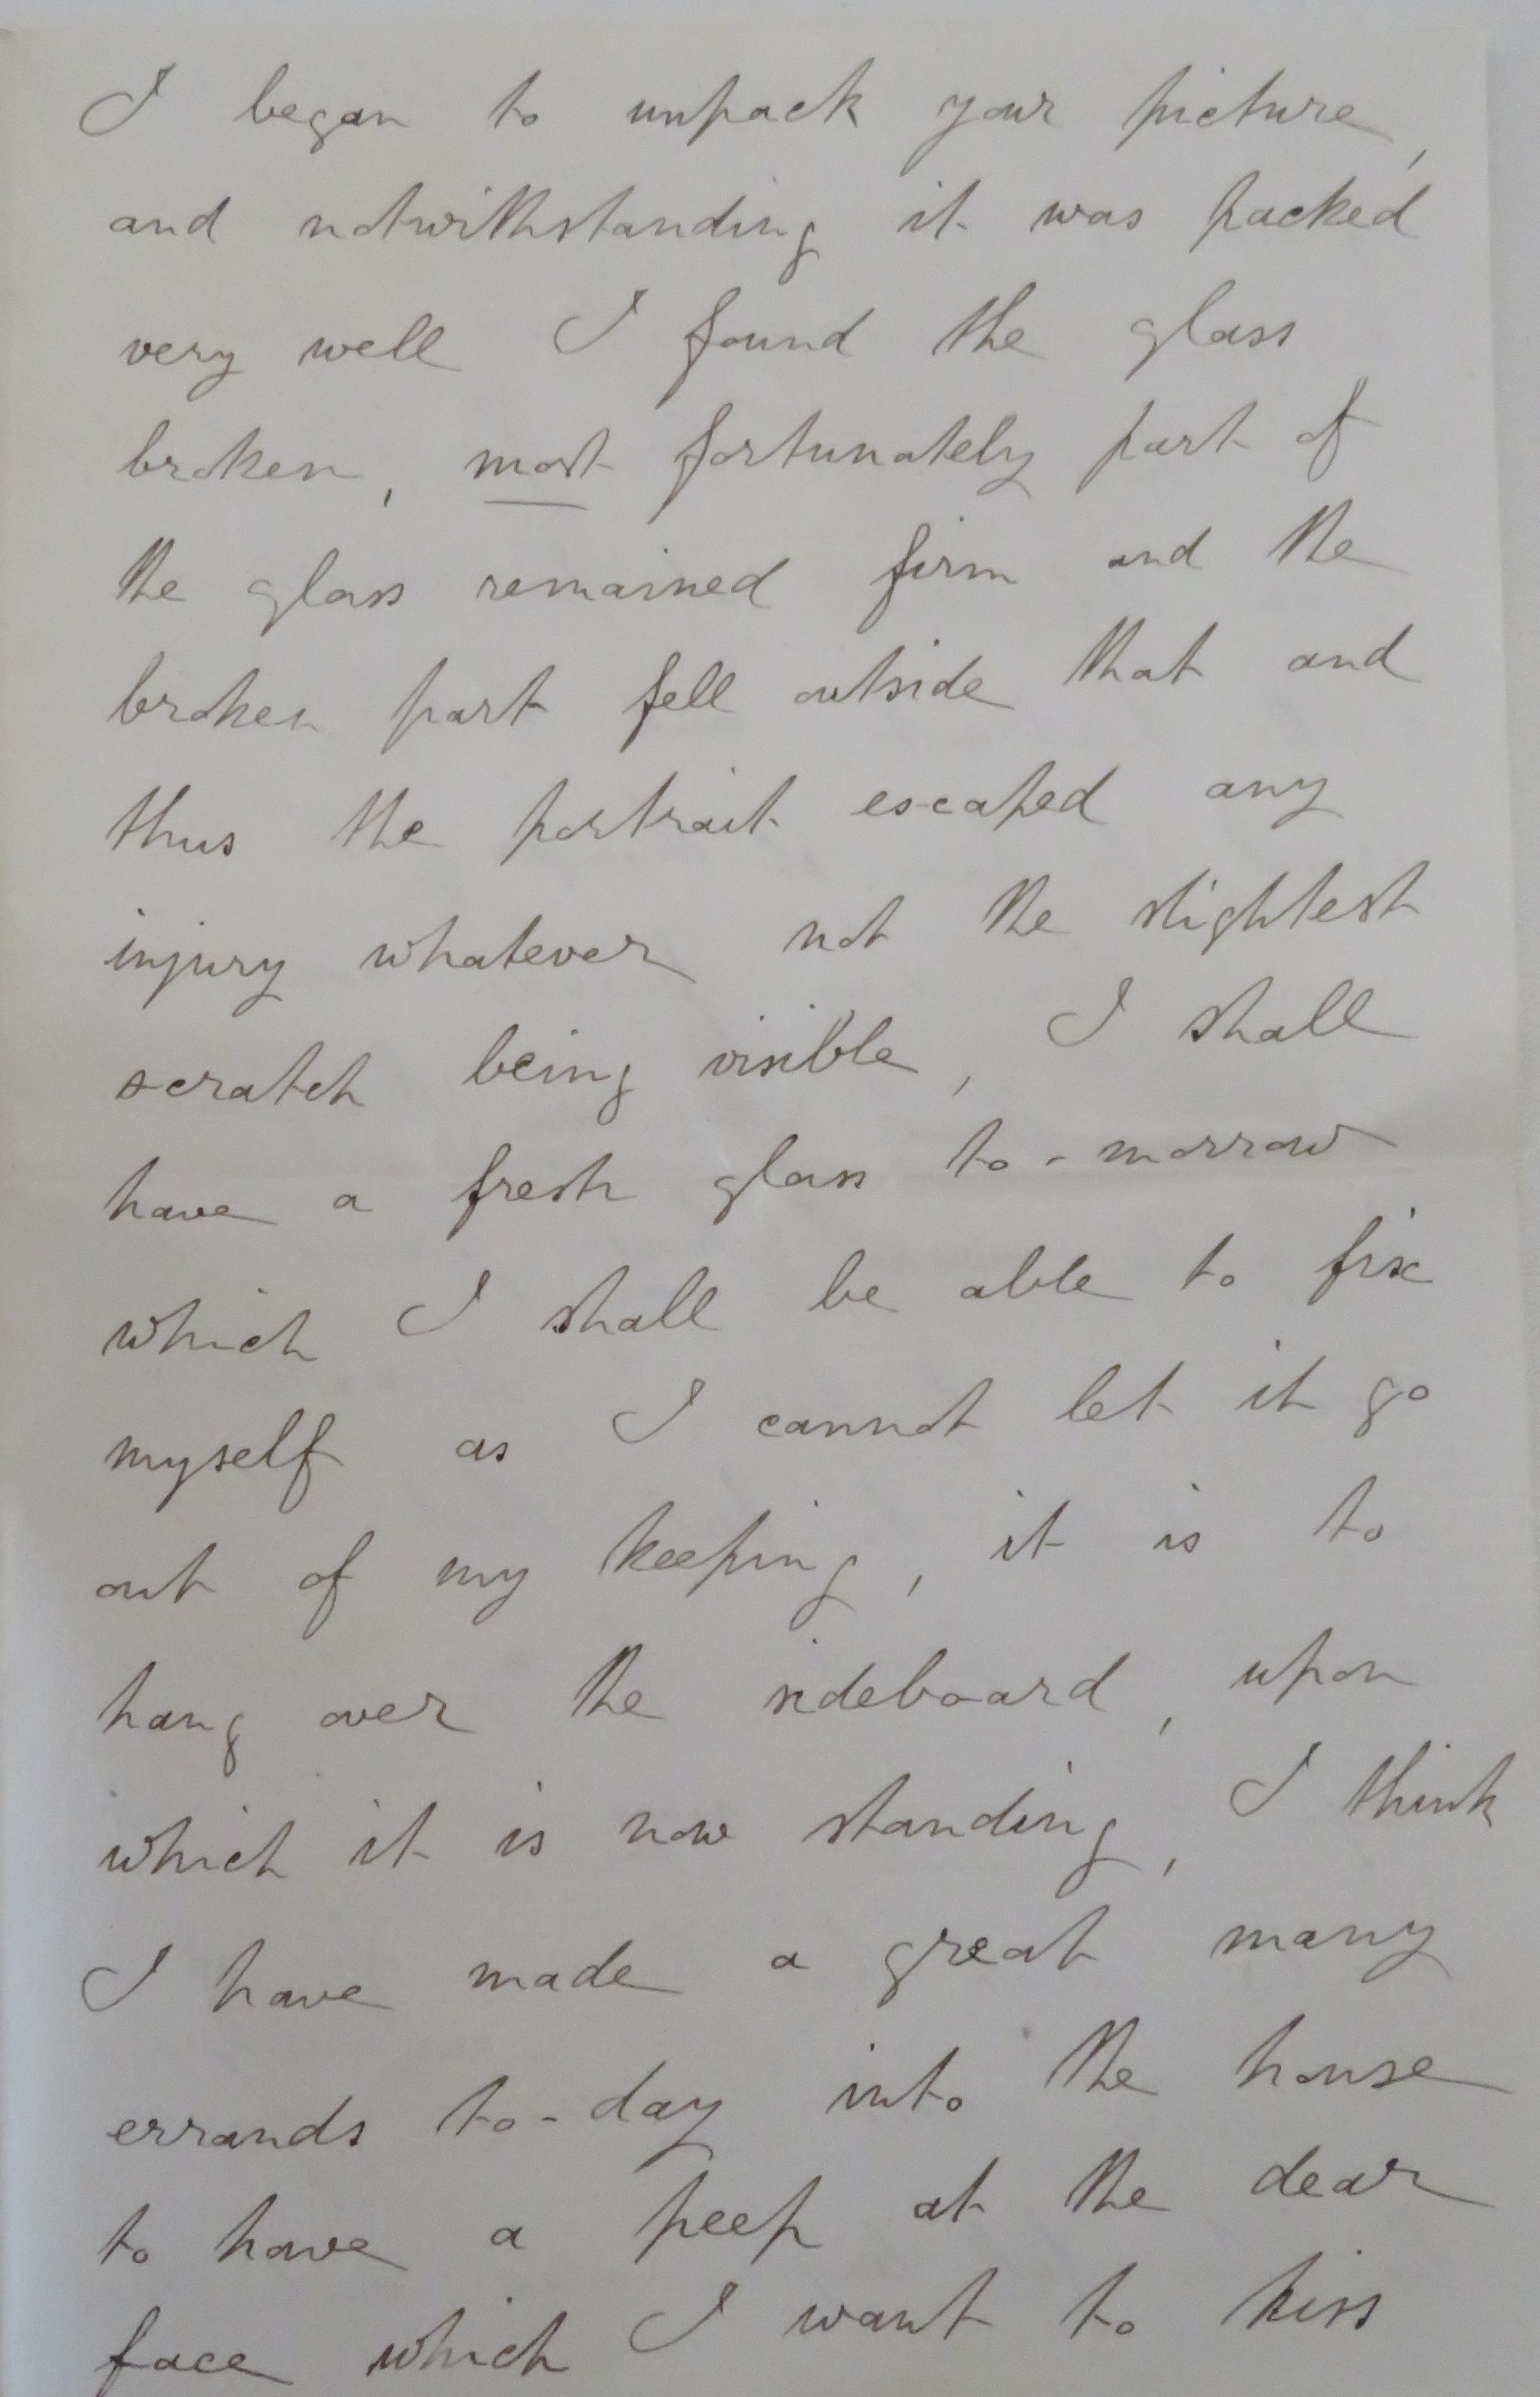 I began to unpack your picture,
and notwithstanding it was packed
very well I found the glass
broken, most fortunately part of
the glass remained firm and the
broken part fell outside that and
thus the portrait escaped any
injury whatever not the slightest
scratch being visible, I shall
have a fresh glass to-morrow
which I shall be able to fix
myself as I cannot let it go
out of my keeping, it is to
hang over the sideboard, upon
which it is now standing, I think
I have made a great many
errands to-day into the house
to have a peep at the dear
face which I want to kiss